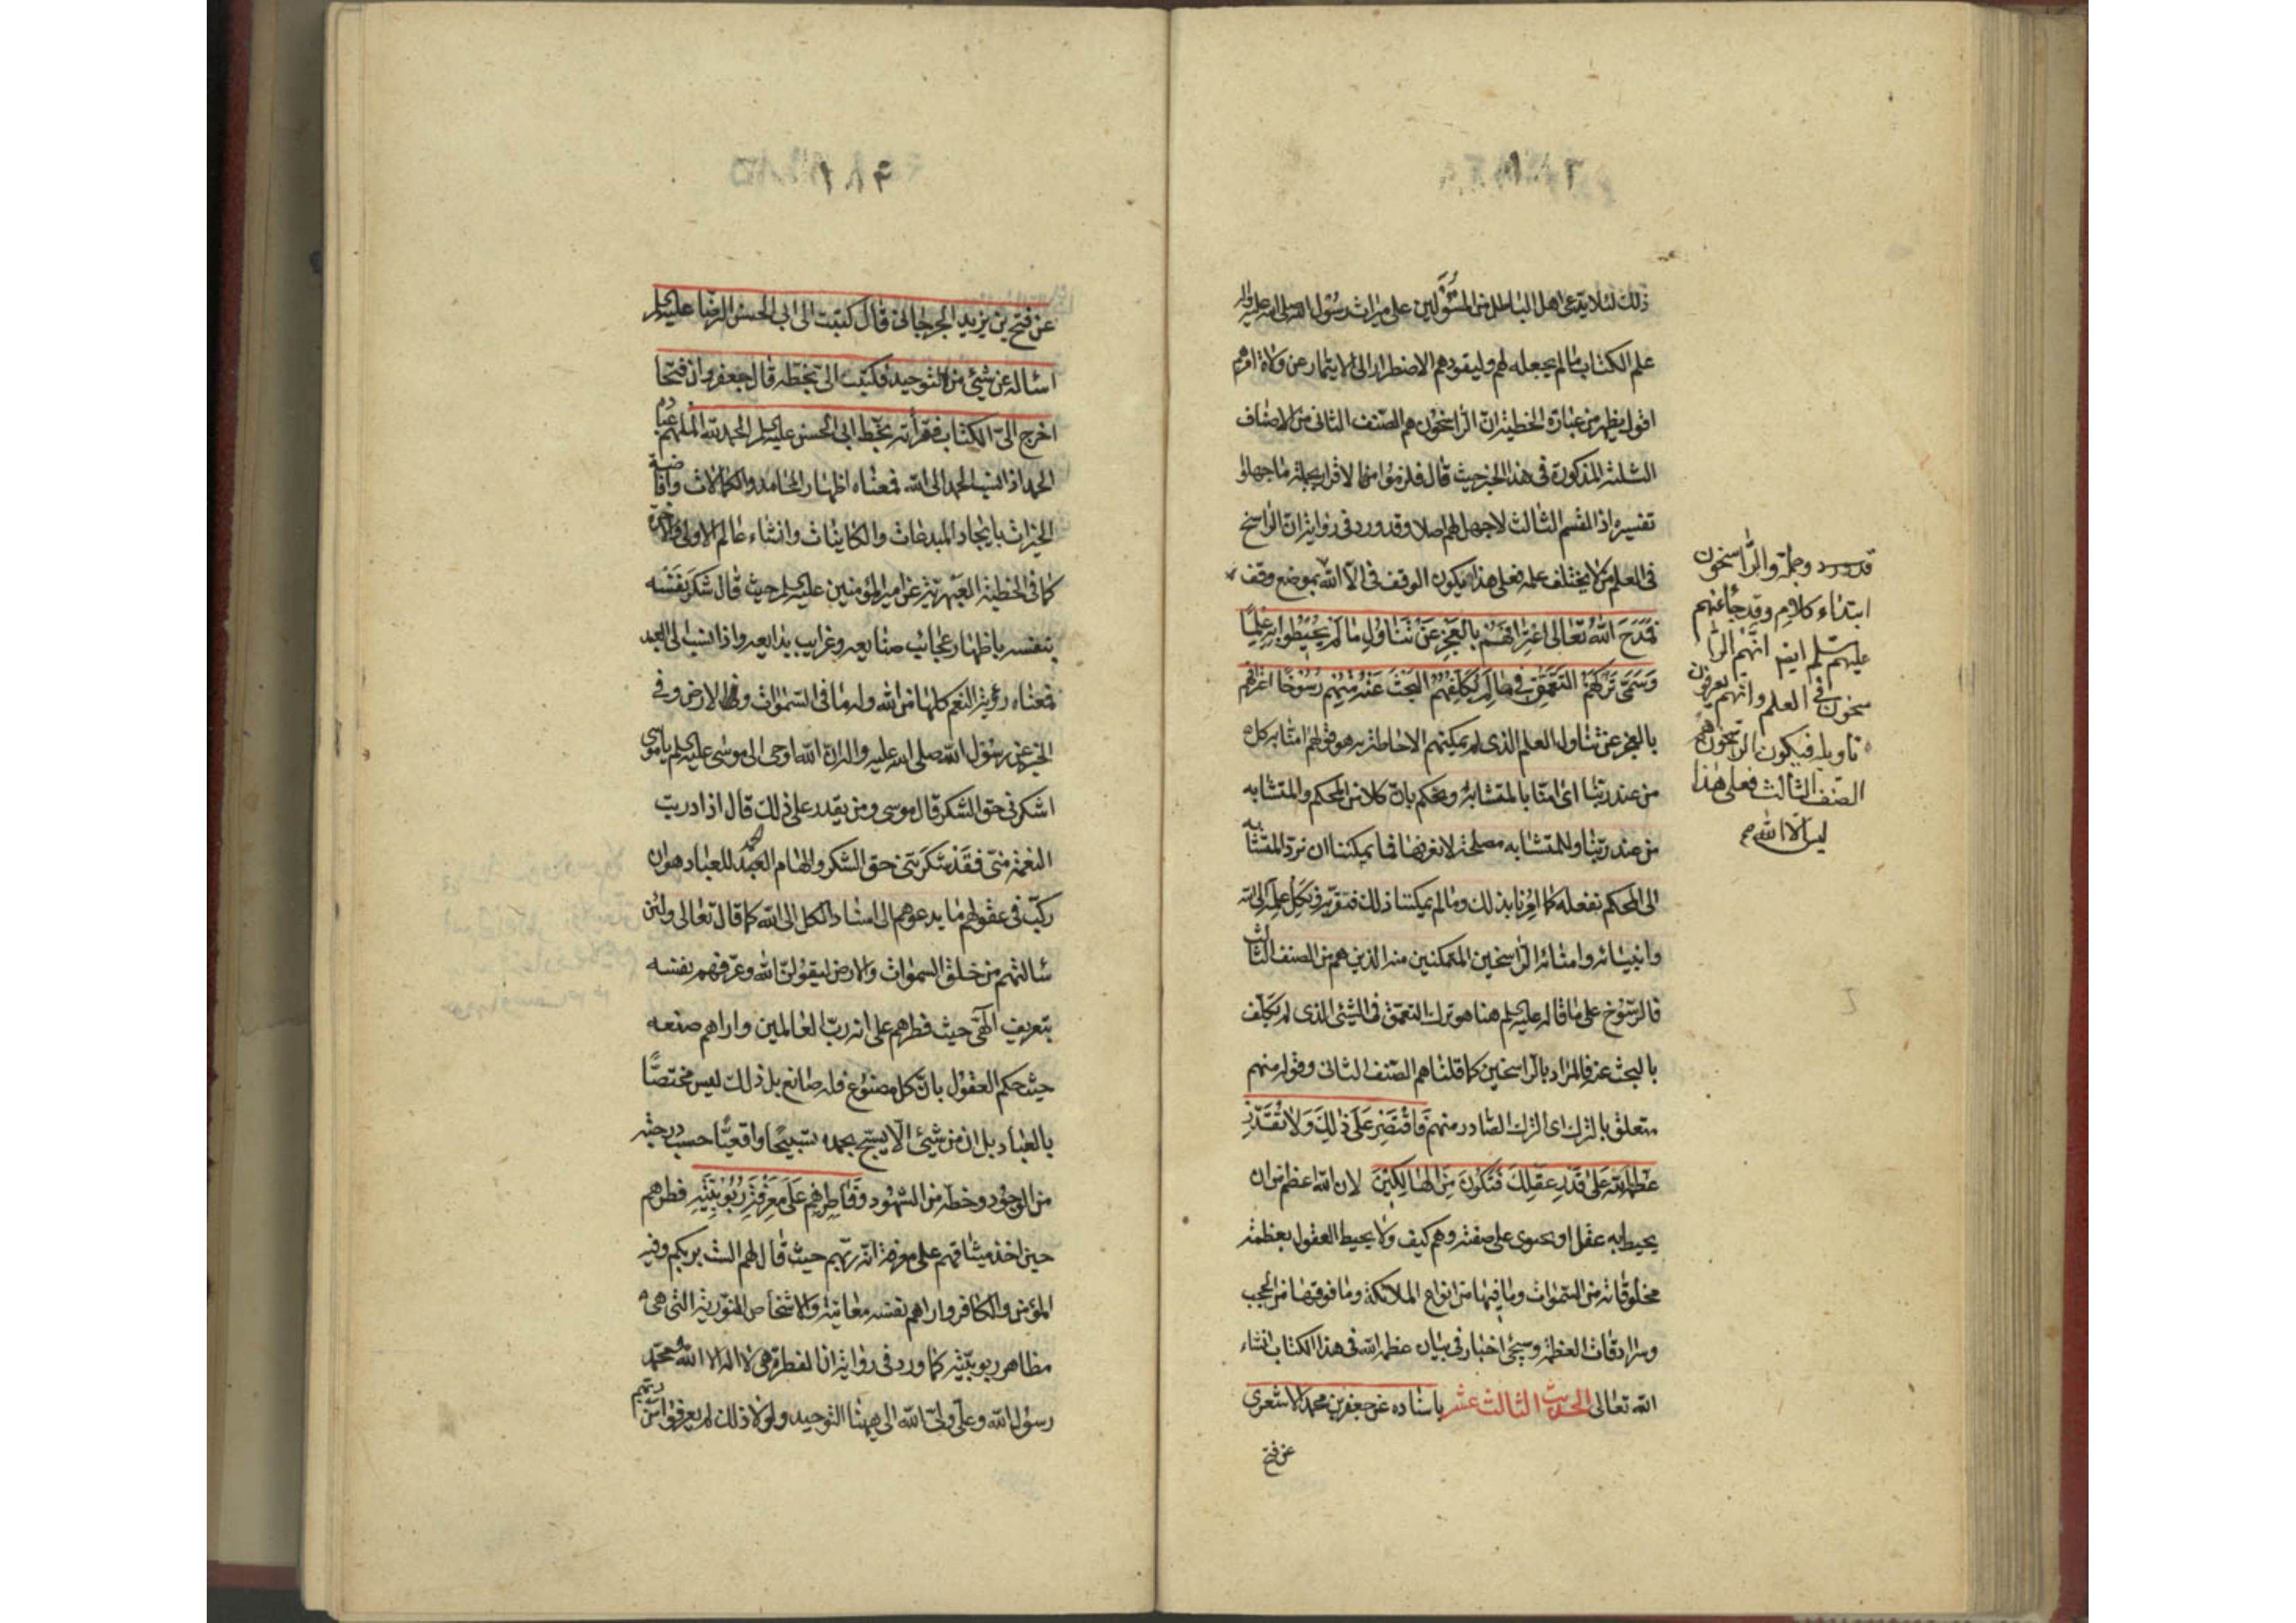 ذلك لئلا يدعى اهل الباطل من المستولين على ميراث رسول الله صلى الله عليه واله
علم الكتاب ما لم يجعله لهم وليقودهم الاضطرار الى الايتمار عن ولاة امرهم
اقول يظهر من عبارة الخطبة ان الراسخون هم الصنف الثانى من الاصناف
الثلثة المذكورة فى هذا الخبر حيث قال فلزموا الاقرار بجملة ما جهلوا
تفسيره اذ القسم الثالث لاجهل لهم اصلا وقد ورد فى رواية ان الراسخ
فى العلم من لا يختلف علمه فعلى هذا يكون الوقف فى الا الله بموضع وقف
فمَدَحَ اللهُ تعالى اعترافَهُم بالعجز عن تناول ما لم يحيطوا به علما
وسمّى تركهم التعمّق فى ما لم يكلفهم البحث عنه منهم رسوخا اعترافهم
بالعجز عن تناول العلم الذى لم يمكنهم الاحاطة به هو قولهم امنا به كل
من عند ربنا اى امنا بالمتشابه ونحكم بان كلا من المحكم والمتشابه
من عند ربنا وللمتشابه مصلحة لا نعرفها فما يمكننا ان نرد المتشابه
الى المحكم نفعله كما امرنا بذلك وما لم يمكننا ذلك فنقر به ونكل علمه الى الله
وانبيائه وامنائه الراسخين المتمكنين منه الذين هم من الصنف الثالث
فالرسوخ على ما قاله عليه السلم هنا هو ترك التعمق فى الشئ الذى لم يكلف
بالبحث عنه فالمراد بالراسخين كما قلنا هم الصنف الثانى وقوله منهم
متعلق بالترك اى الترك الصادر منهم فاقتصر على ذلك ولا تقدر
عظمة الله على قدر عقلك فتكون من الهالكين لان الله اعظم من ان
يحيط به عقل او يحتوى على صفته وهم كيف ولا يحيط العقول بعظمة
مخلوقاته من السموات وما فيها من انواع الملائكة وما فوقها من الحجب
وسرادقات العظمة وسيجئ اخبار فى بيان عظمة الله فى هذا الكتاب انشاء
الله تعالى الحديث الثالث عشر باسناده عن جعفر بن محمد الاشعرى
عن فتح
وجملة والراسخون
ابتداء كلام وقد جاء عنهم
عليهم السلم ايضا انهم الرا
سخون فى العلم وانهم يعرفون
تاويله فيكون الراسخون هم
الصنف الثالث فعلى هذا
ليس الا الله
عن فتح بن يزيد الجرجانى قال كتبت الى ابى الحسن الرضا عليه السلم
اسأله عن شئ من التوحيد فكتب الى بخطه قال جعفر وان فتحا
اخرج الى الكتاب فقرأته بخط ابى الحسن عليه السلم الحمد لله الملهم عباده
الحمد اذا نسب الحمد الى الله فمعناه اظهار المحامد والكمالات وافاضة
الخيرات بايجاد المبدعات والكاينات وانشاء عالم الاولى والاخرة
كما فى الخطبة عن امير المؤمنين عليه السلم حيث قال شكر نفسه
بنفسه باظهار عجائب صنايعه وغرايب بدايعه واذا نسب الى العبد
فمعناه رؤية النعم كلها من الله وله ما فى السموات وما فى الارض وفى
الخبر عن رسول الله صلى الله عليه واله ان الله اوحى الى موسى عليه السلم يا موسى
اشكرنى حق الشكر قال موسى ومن يقدر على ذلك قال اذا دريت
النعمة منى فقد شكرتنى حق الشكر والهام الحمد للعباد هو ان
ركب فى عقولهم ما يدعوهم الى اسناد الكل الى الله كما قال تعالى ولئن
سألتهم من خلق السموات والارض ليقولن الله وعرفهم نفسه
بتعريف الهى حيث فطرهم على انه رب العالمين واراهم صنعه
حيث حكم العقول بان كل مصنوع فله صانع بل ذلك ليس مختصا
بالعباد بل ان من شئ الا يسبح بحمده تسبيحا واقعيا حسب درجته
من الوجود وحظه من الشهود وفاطرهم على معرفة ربوبيته فطرهم
حين اخذ ميثاقهم على معرفة انه ربهم حيث قال لهم الست بربكم وفيه
المؤمن والكافر واراهم نفسه معاينة والاشخاص النورية التى هى
مظاهر ربوبيته كما ورد فى رواية ان الفطرة هى لا اله الا الله محمد
رسول الله وعلى ولى الله الى هيهنا التوحيد ولولا ذلك لم يعرفوا من ربهم